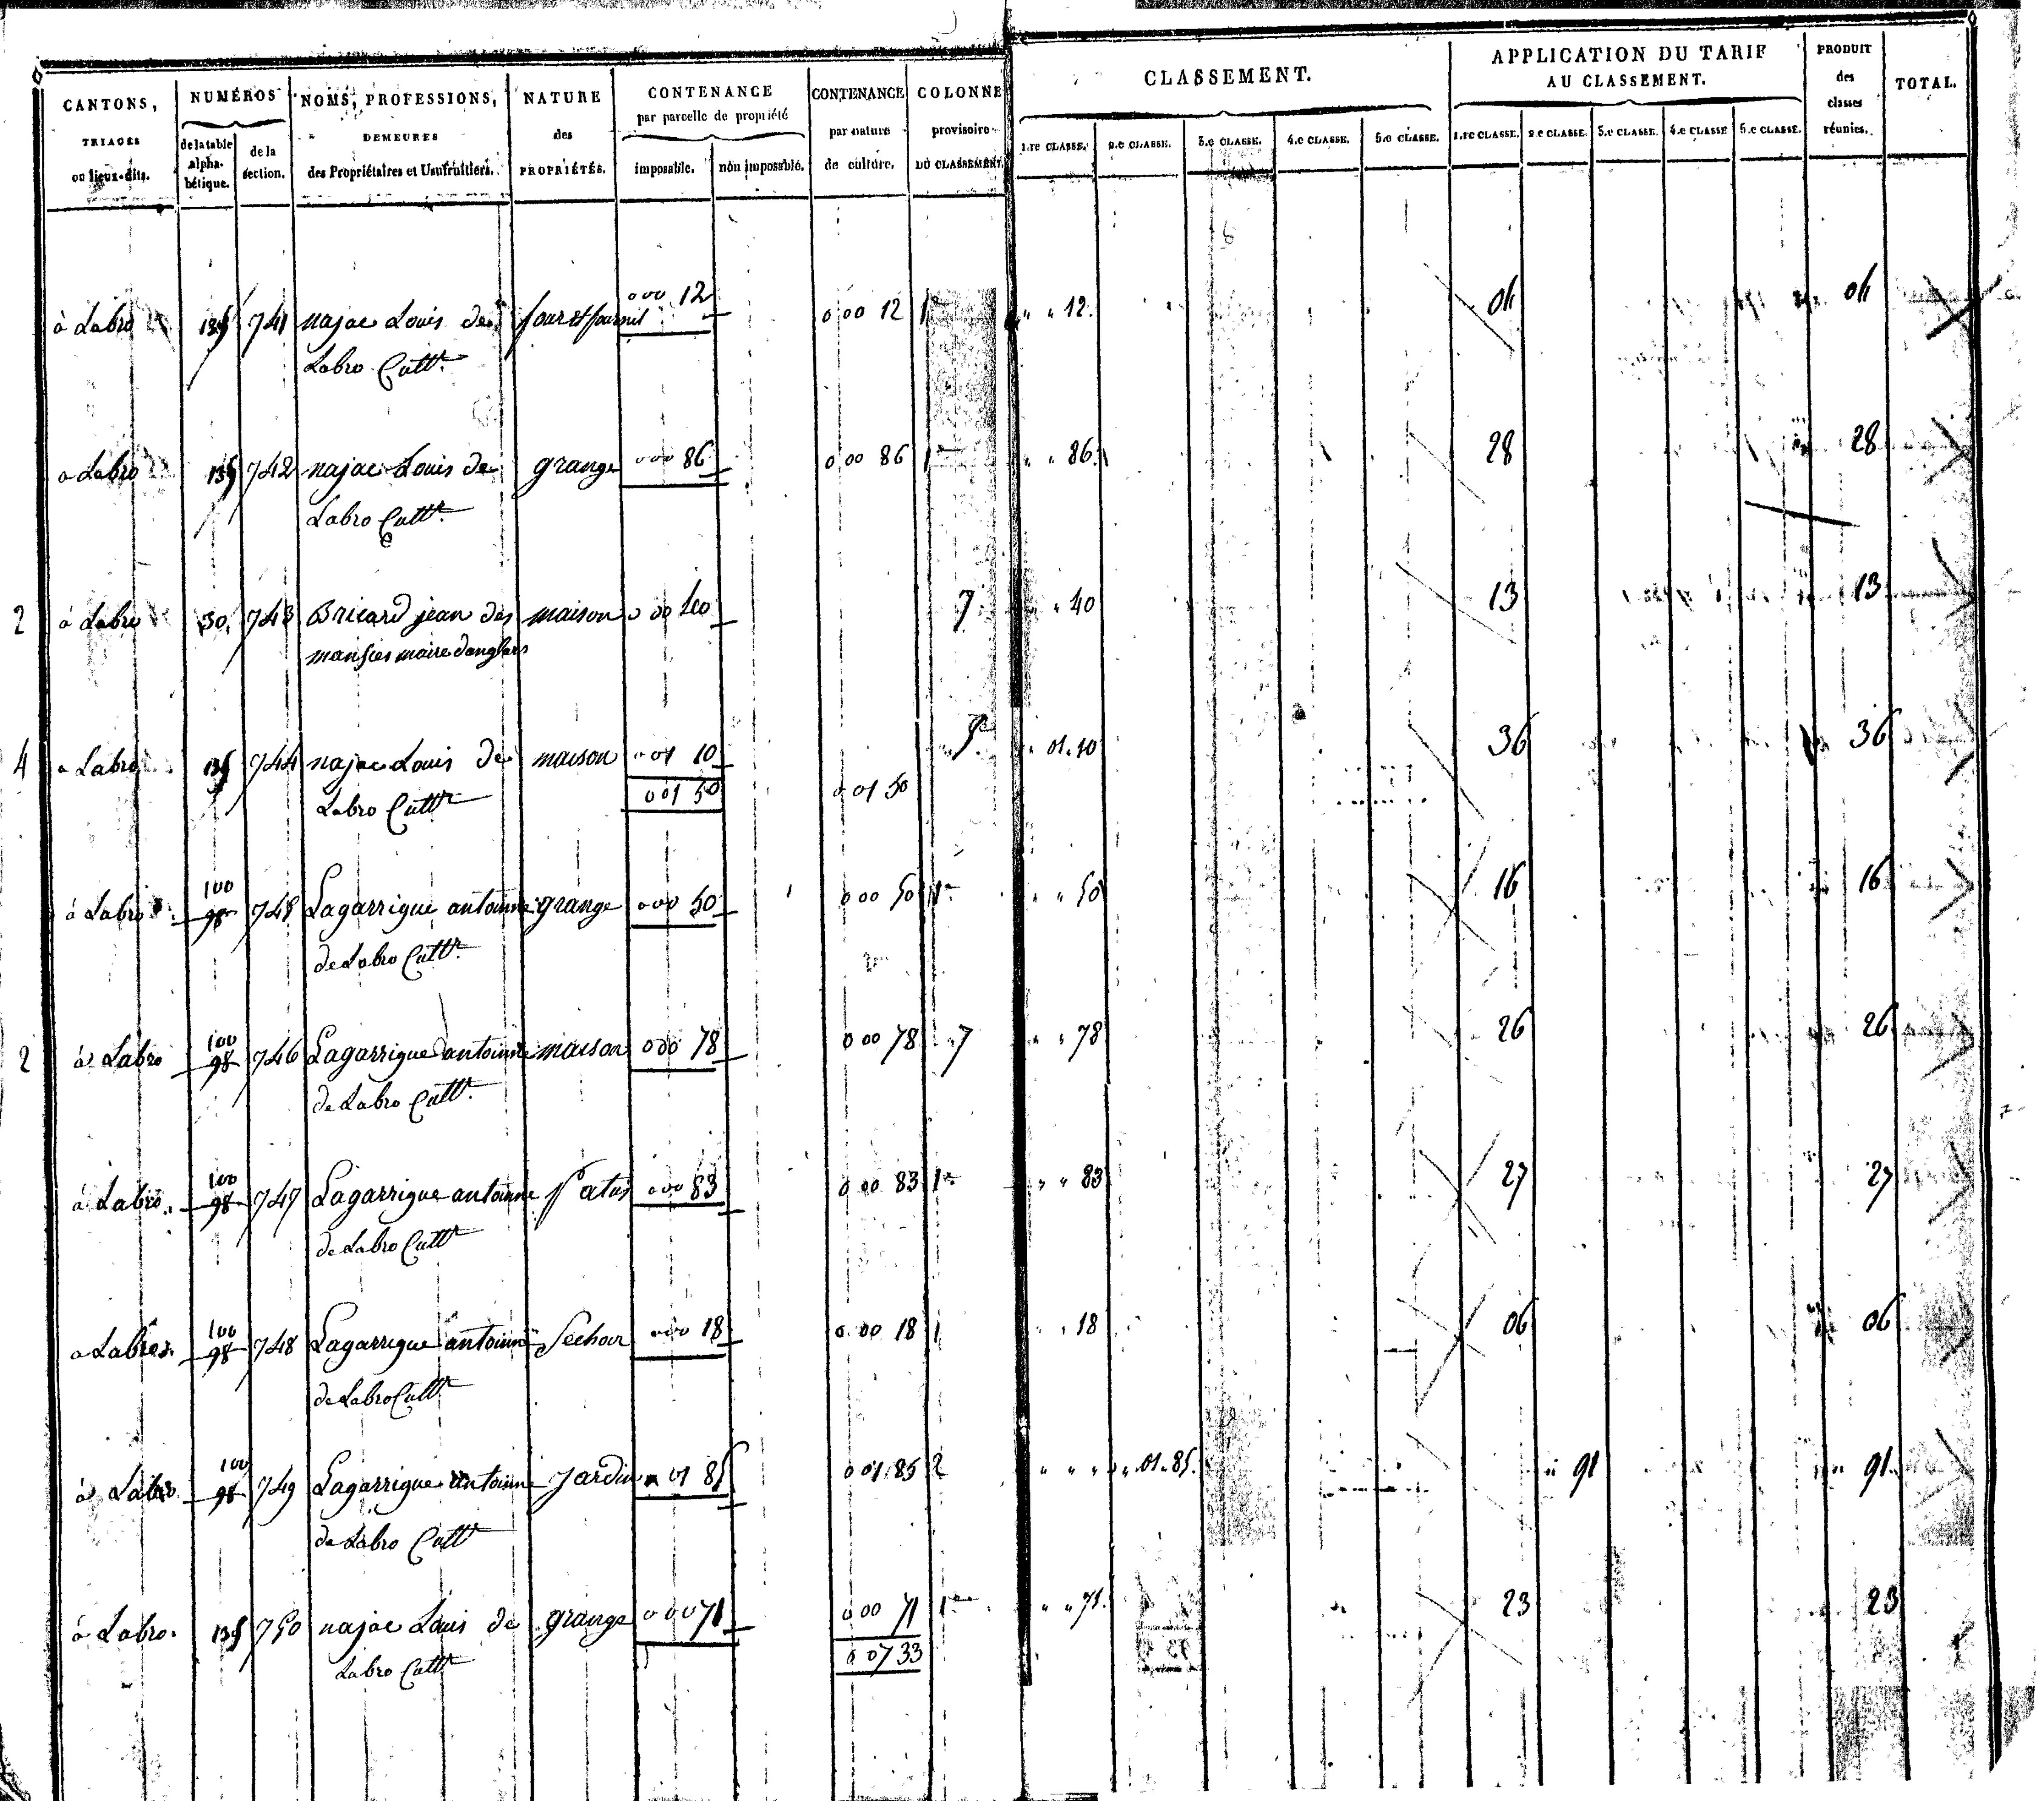 CANTONS,
TRIAGES
ou lieux-dits.
NUMÉROS
de la table alpha-bétique.
de la section.
NOMS, PROFESSIONS,
DEMEURES
des Propriétaires et Usufruitiers.
NATURE
des
PROPRIÉTÉS.
CONTENANCE
par parcelle de propriété
imposable.
non imposable.
CONTENANCE
par nature
de culture.
COLONNE
provisoire
DU CLASSEMENT.
CLASSEMENT.
1.re CLASSE. 2.e CLASSE. 3.e CLASSE. 4.e CLASSE. 5.e CLASSE.
APPLICATION DU TARIF
AU CLASSEMENT.
1.re CLASSE. 2.e CLASSE. 3.e CLASSE. 4.e CLASSE 5.e CLASSE.
PRODUIT
des
classes
réunies.
TOTAL.
à Labro 135 741 najac Louis de four et fournil 000 12 0 00 12 1re " " 12. 04 04
Labro Cultr.
a Labro 135 742 najac Louis de grange 000 86 0 00 86 1re " " 86. 28 28
Labro Cultr.
2 à Labro 30 743 Bricard jean des maison 0 00 40 7 " 40 13 13
mansies maire danglars
4 a Labro 135 744 najac Louis de maison 0 01 10 9e 01.10 36 36
Labro Cultr 0 01 50 0 01 50
100
à Labro 98 745 Lagarrigue antoinne grange 000 50 0 00 50 1re " " 50 16 16
de Labro Cultr.
100
2 à Labro 98 746 Lagarrigue antoinne maison 000 78 0 00 78 7 " " 78 26 26
de Labro Cultr.
100
à Labro 98 747 Lagarrigue antoinne Patus 000 83 0 00 83 1re " " 83 27 27
de Labro Cultr
100
a Labro 98 748 Lagarrigue antoinne Sechoir 000 18 0 00 18 1 " 18 06 06
de Labro Cultr
100
à Labro 98 749 Lagarrigue antoinne Jardin 01 85 0 01 85 2 " " " 01.85. 91 91
de Labro Cultr
à Labro. 135 750 najac Louis de grange 0 00 71 0 00 71 1re " " 71. 23 23
Labro Cultr 0 07 33